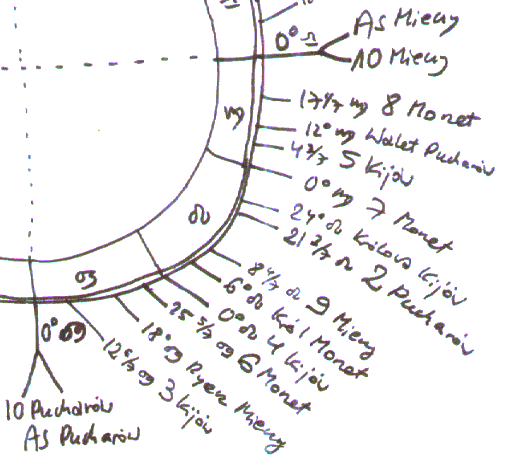 ♎
As Mieczy
0° ♎
10 Mieczy
17 1/7 ♍ 8 Monet
♍
12° ♍ Walet Pucharów
4 2/7 5 Kijów
0° ♍ 7 Monet
♌
24° ♌ Królowa Kijów
21 3/7 ♌ 2 Pucharów
8 4/7 ♌ 9 Mieczy
6° ♌ Król Monet
0° ♌ 4 Kijów
♋
25 5/7 ♋ 6 Monet
18° ♋ Rycerz Mieczy
12 6/7 ♋ 3 Kijów
0° ♋
10 Pucharów
As Pucharów